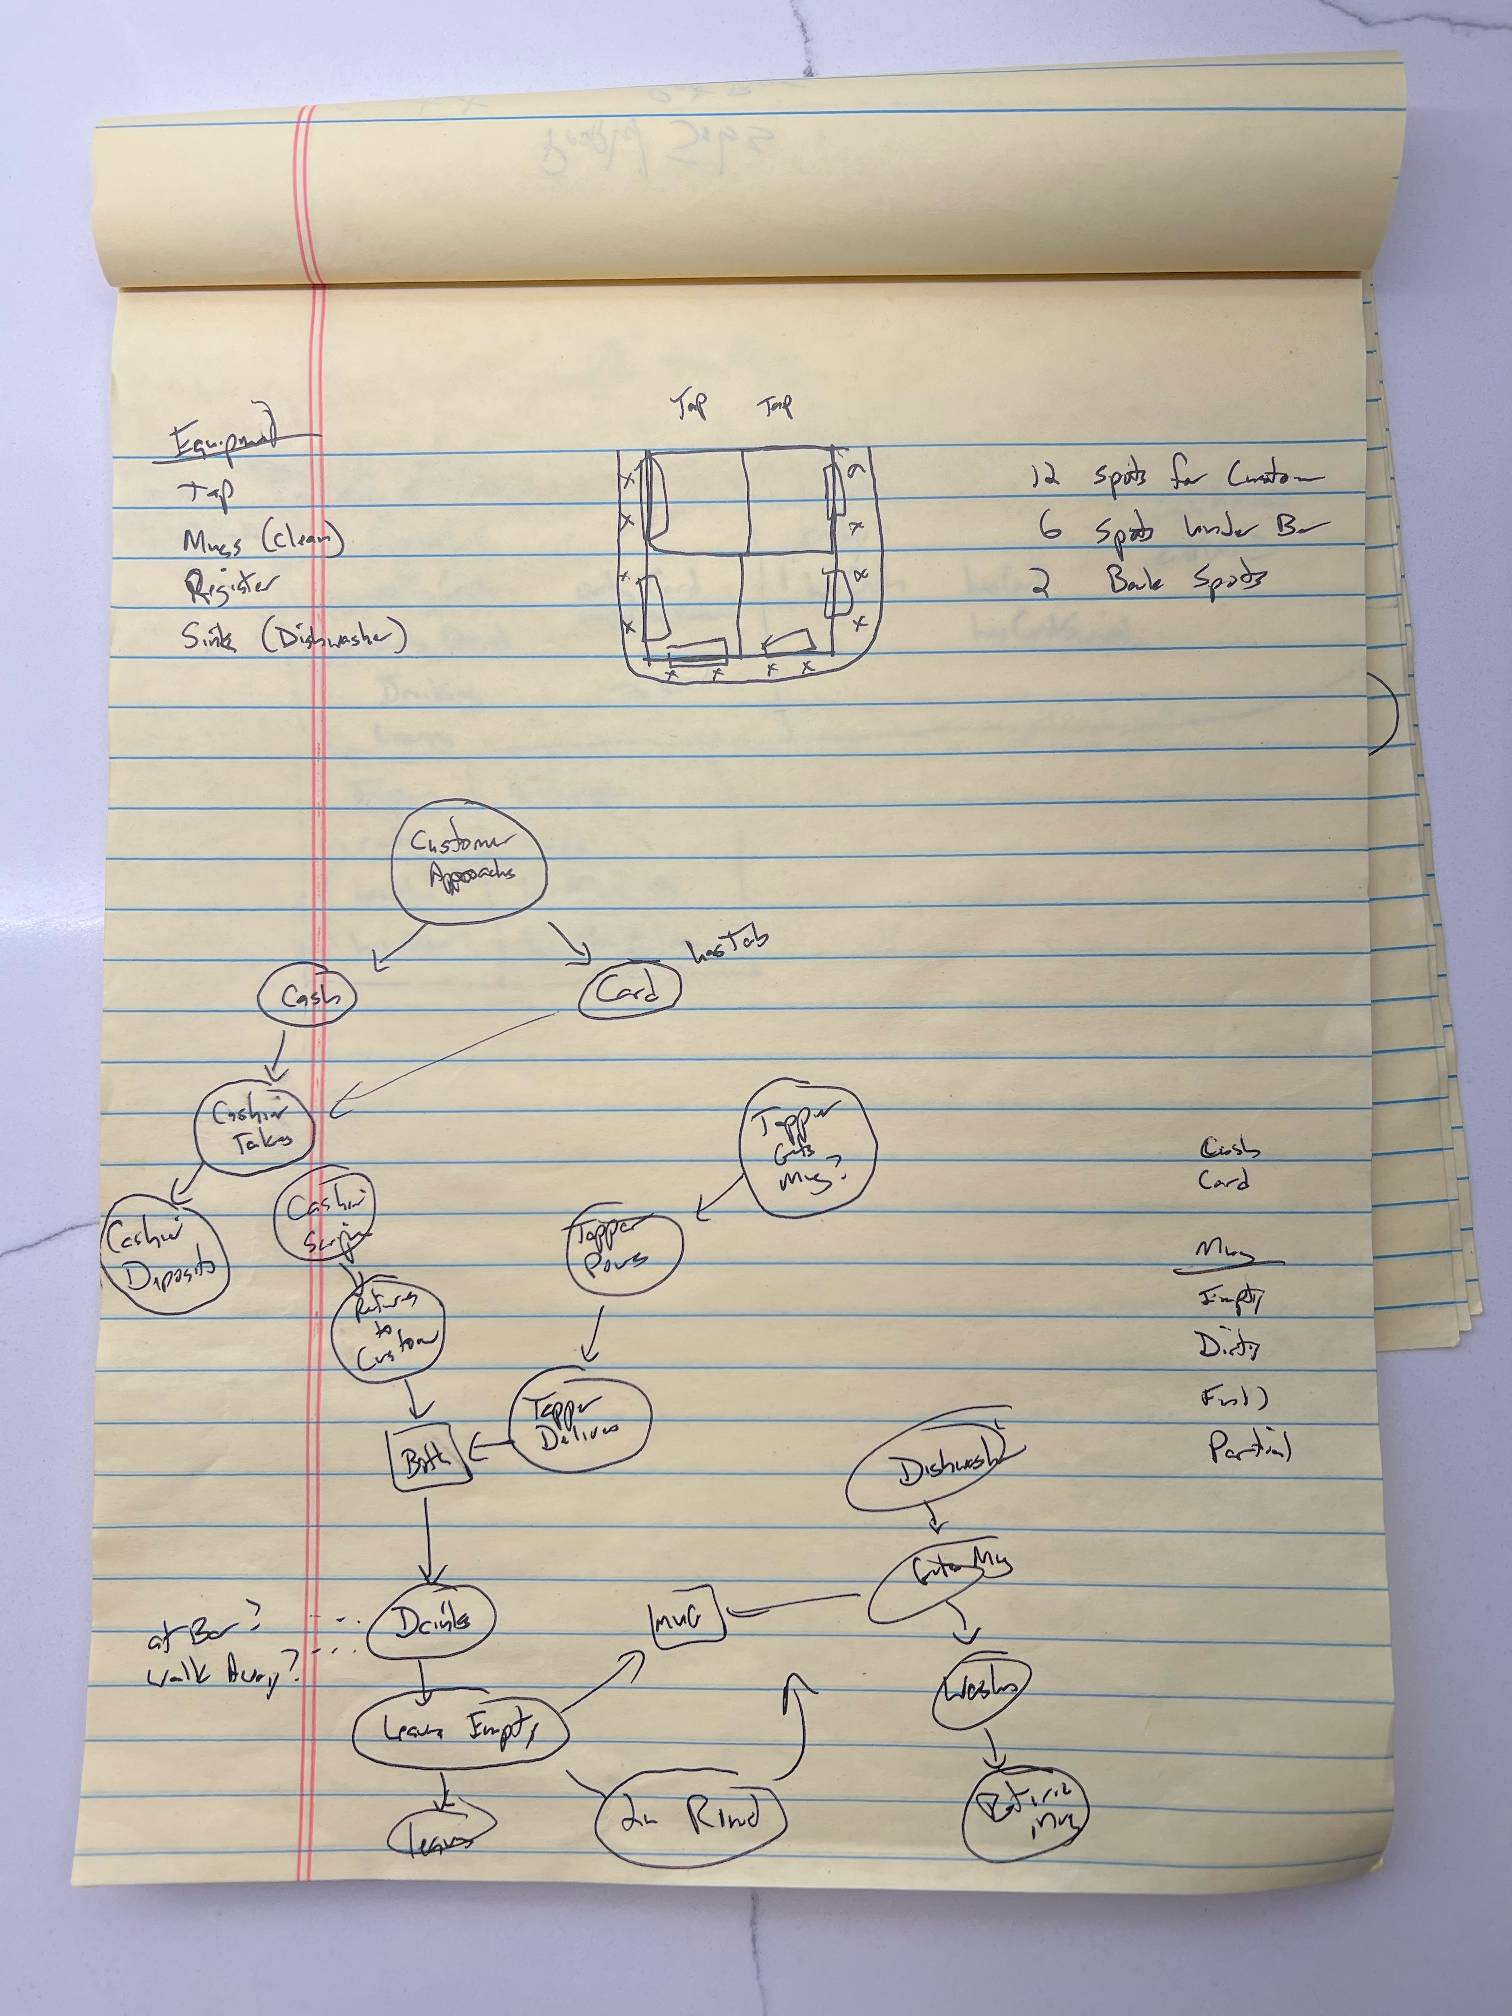 Equipment
Tap
Mugs (Clean)
Register
Sink (Dishwasher)
Tap Tap
12 Spots for Custom
6 Spots Under Bar
2 Back Spots
Customer
Approachs
Cash
Card
hasTab
Cashier
Takes
Cashier
Deposits
Cashier
Returns
to
Custom
Tapper
Gets
Mug?
Tapper
Pours
Tapper
Delivers
Both
Drinks
at Bar?
Walk Away?
Leaves Empty
Leaves
MUG
Dishwasher
Gets Mug
Washes
Mug
Cash
Card
Mug
Empty
Dirty
Full
Partial